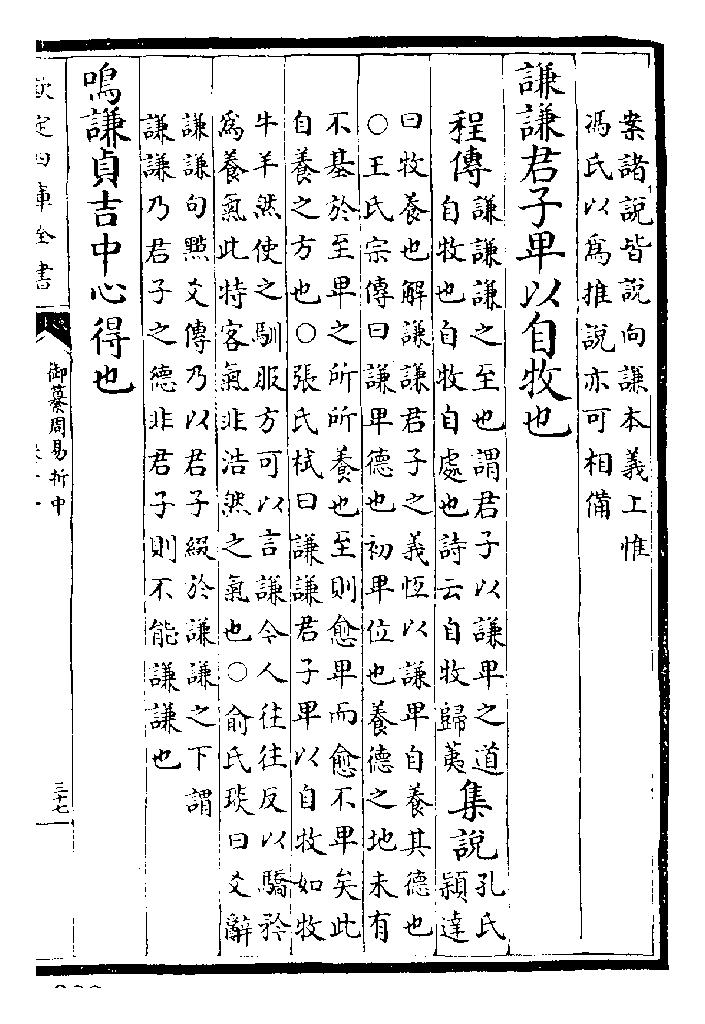 案諸說皆說向謙本義上惟
馮氏以爲推說亦可相備
謙謙君子卑以自牧也
程傳謙謙謙之至也謂君子以謙卑之道
自牧也自牧自處也詩云自牧歸荑
集說孔氏
穎達
曰牧養也解謙謙君子之義恆以謙卑自養其德也
○王氏宗傳曰謙卑德也初卑位也養德之地未有
不基於至卑之所所養也至則愈卑而愈不卑矣此
自養之方也○張氏栻曰謙謙君子卑以自牧如牧
牛羊然使之馴服方可以言謙今人往往反以驕矜
爲養氣此特客氣非浩然之氣也○俞氏琰曰爻辭
謙謙句點爻傳乃以君子綴於謙謙之下謂
謙謙乃君子之德非君子則不能謙謙也
鳴謙貞吉中心得也
欽定四庫全書
御纂周易折中
三十七